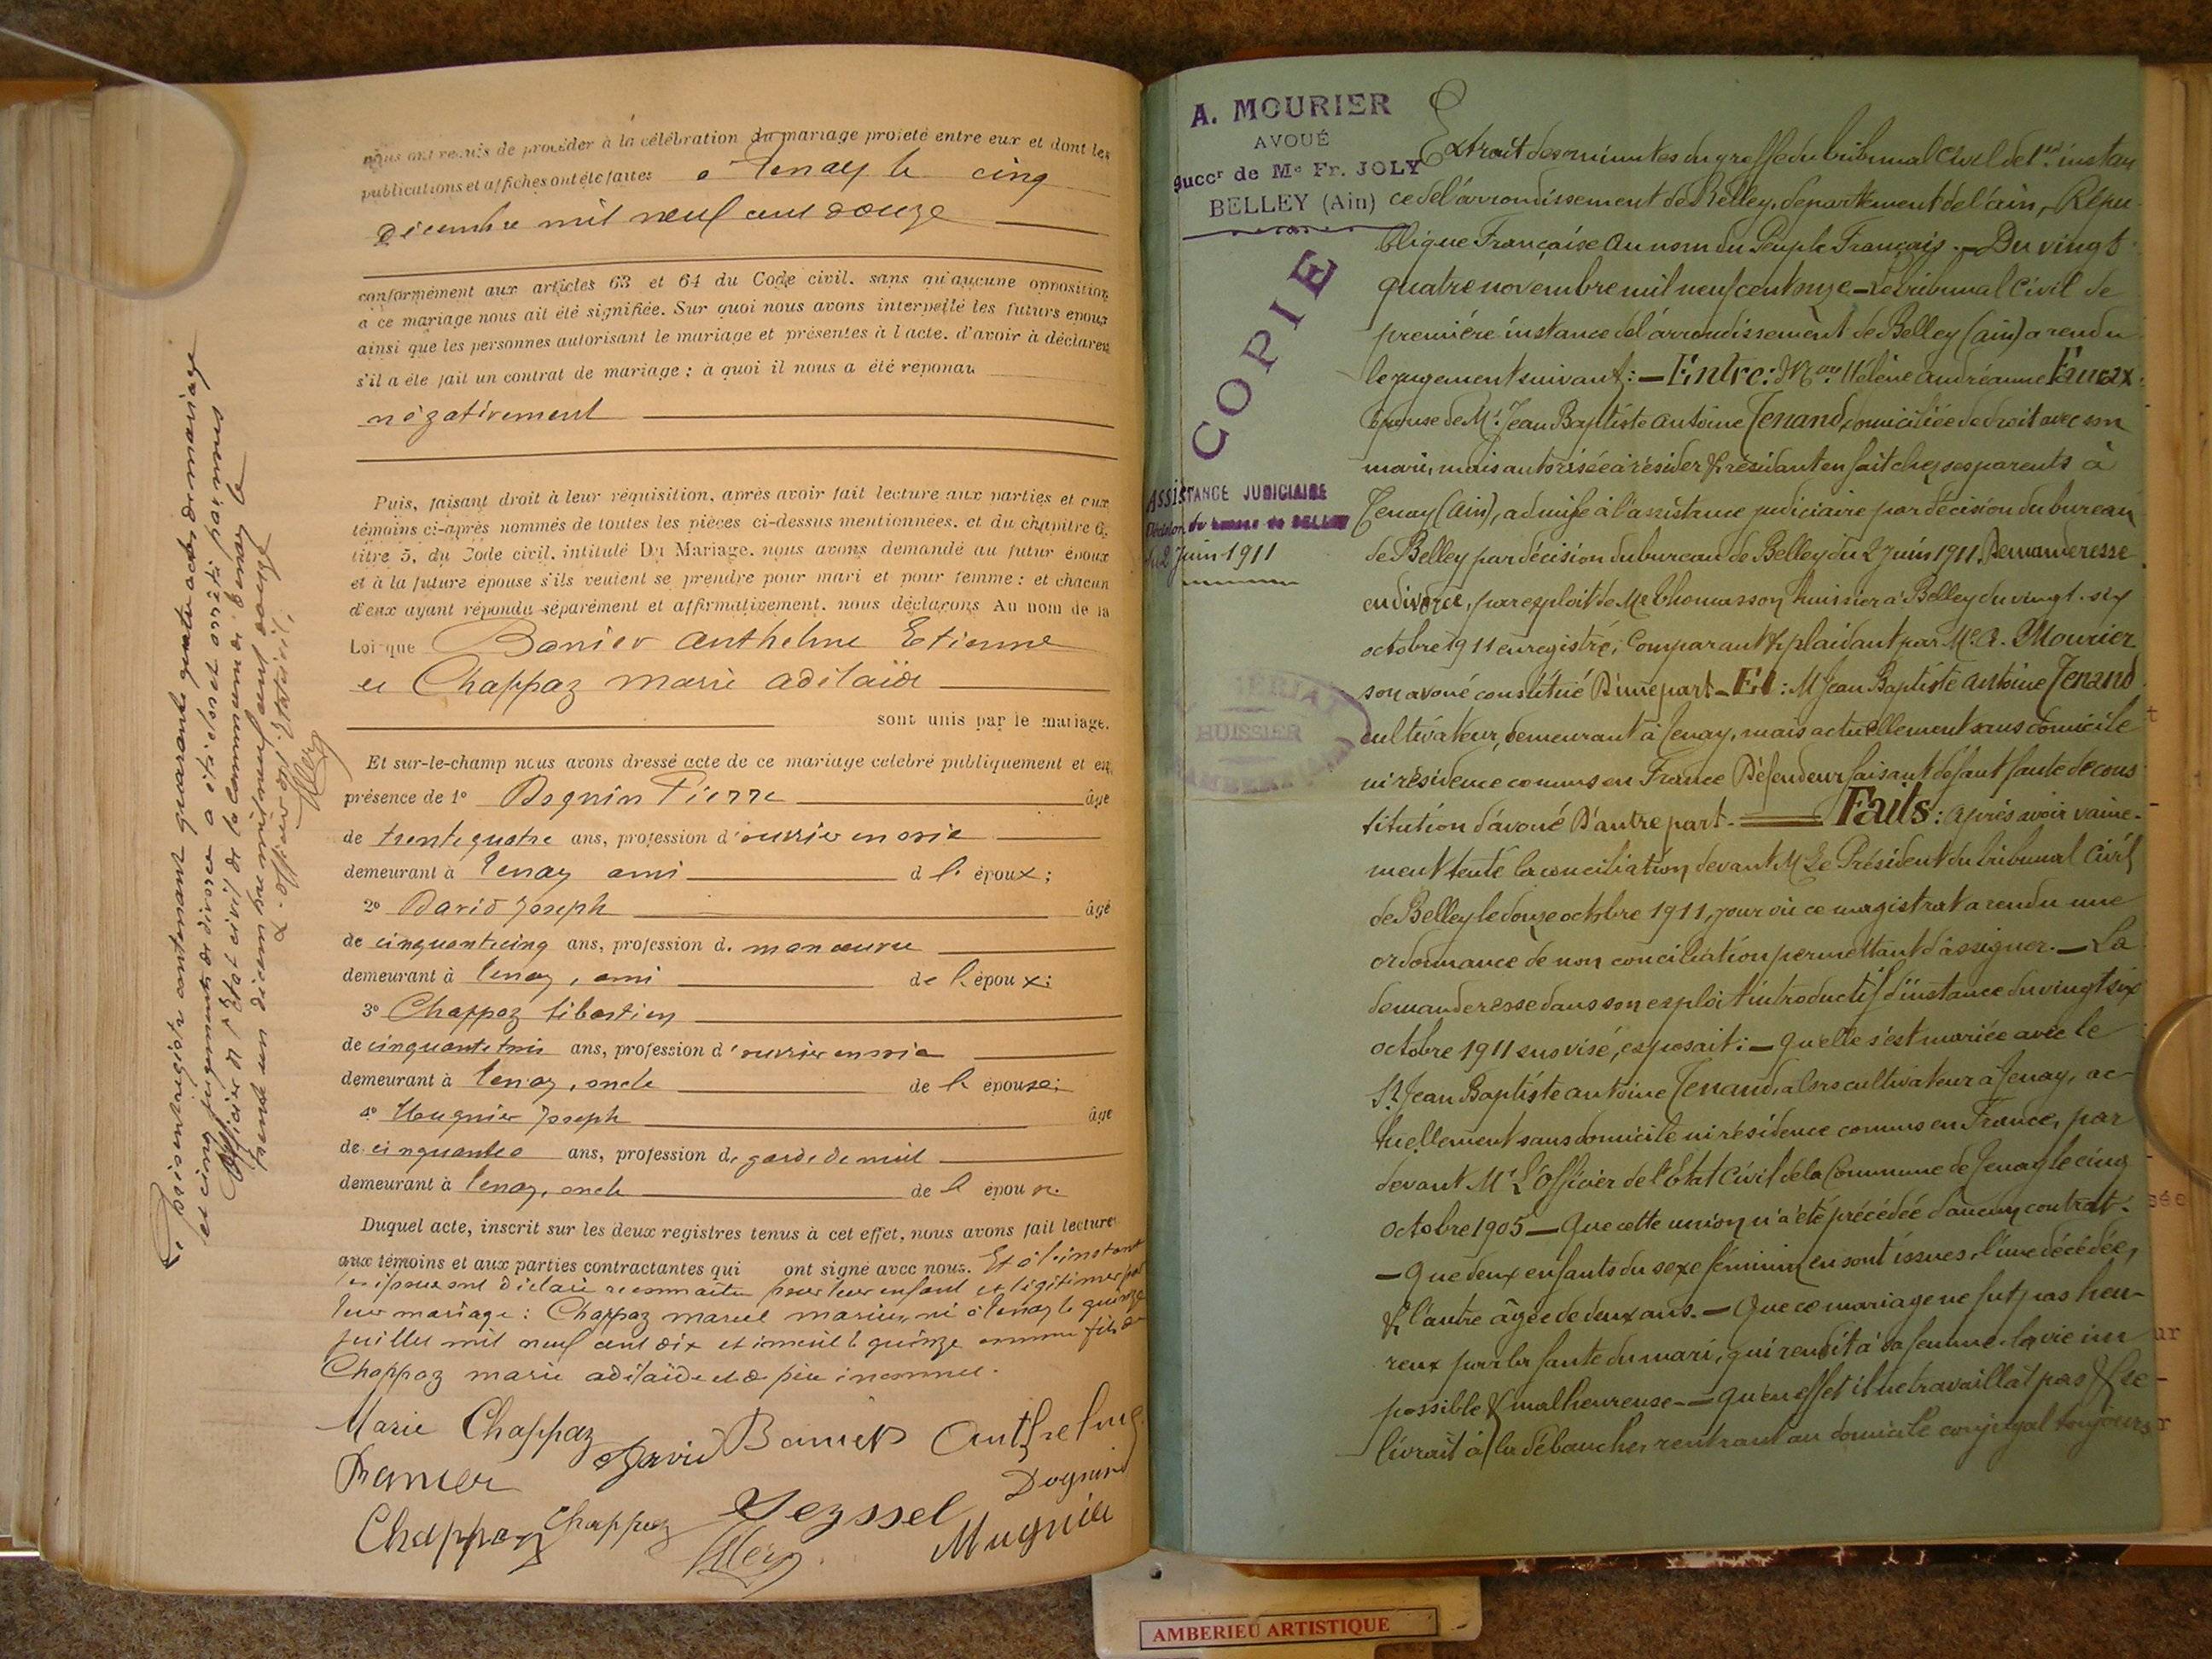 nous ont requis de procéder à la célébration du mariage projeté entre eux et dont les
publications et affiches ont été faites à Tenay le cinq
décembre mil neuf cent douze
conformément aux articles 63 et 64 du Code civil, sans qu'aucune opposition
à ce mariage nous ait été signifiée. Sur quoi nous avons interpellé les futurs époux
ainsi que les personnes autorisant le mariage et présentes à l'acte, d'avoir à déclarer
s'il a été fait un contrat de mariage ; à quoi il nous a été répondu
négativement
Puis, faisant droit à leur réquisition, après avoir fait lecture aux parties et aux
témoins ci-après nommés de toutes les pièces ci-dessus mentionnées, et du chapitre 6,
titre 5, du Code civil, intitulé Du Mariage, nous avons demandé au futur époux
et à la future épouse s'ils veulent se prendre pour mari et pour femme ; et chacun
d'eux ayant répondu séparément et affirmativement, nous déclarons Au nom de la
Loi que Banier Anthelme Etienne
et Chappaz marie adélaïde
sont unis par le mariage.
Et sur-le-champ nous avons dressé acte de ce mariage célébré publiquement et en
présence de 1° Dognin Pierre âgé
de trente quatre ans, profession d'ouvrier en soie
demeurant à Tenay ami d l' époux ;
2° David Joseph âgé
de cinquante cinq ans, profession de manœuvre
demeurant à Tenay, ami de l' époux ;
3° Chappaz Sébastien
de cinquante trois ans, profession d'ouvrier en soie
demeurant à Tenay, oncle de l' épouse ;
4° Mugnier Joseph âgé
de cinquante ans, profession de garde de nuit
demeurant à Tenay, oncle de l' épouse.
Duquel acte, inscrit sur les deux registres tenus à cet effet, nous avons fait lecture
aux témoins et aux parties contractantes qui ont signé avec nous. Et à l'instant
les époux ont déclaré reconnaître pour leur enfant et légitimer par
leur mariage : Chappaz marcel marius, né à Tenay le quinze
juillet mil neuf cent dix et inscrit le quinze comme fils de
Chappaz marie adélaïde et de père inconnu.
Marie Chappaz
David Banier Anthelme
Dognin
Chappaz Chappaz Seyssel
Mugnier
Le présent registre contenant quarante quatre actes de mariage
et cinq jugements de divorce a été clos et arrêté par nous
officier de l'état civil de la commune de Tenay le
trente un décembre mil neuf cent douze
L'officier de l'état civil,
A. MOURIER
AVOUÉ
Succr de Me Fr. JOLY
BELLEY (Ain)
COPIE
ASSISTANCE JUDICIAIRE
Décision du bureau de BELLEY
du 2 juin 1911
HUISSIER
Extrait des minutes du greffe du tribunal civil de 1ère instan
ce de l'arrondissement de Belley, departement de l'ain, Répu
blique Française Au nom du Peuple Français. — Du vingt
quatre novembre mil neuf cent onze — Le tribunal Civil de
première instance de l'arrondissement de Belley (ain) a rendu
le jugement suivant : — Entre : Mme Hélène andréanne
Epouse de Mr Jean Baptiste antoine Tenand, domiciliée de droit avec son
mari, mais autorisée à résider & résidant en fait chez ses parents à
Tenay (Ain), admise à l'assistance judiciaire par décision du bureau
de Belley par décision du bureau de Belley du 2 juin 1911. Demanderesse
en divorce, par exploit de Me Thomasson huissier à Belley du vingt-six
octobre 1911 enregistré ; Comparant & plaidant par Me A. Mourier
son avoué constitué D'une part — Et : M Jean Baptiste antoine Tenand
cultivateur, demeurant à Tenay, mais actuellement sans domicile
ni résidence connus en France Défendeur faisant défaut faute de cons
titution d'avoué D'autre part. — Faits : après avoir vaine-
ment tenté la conciliation devant M Le Président du tribunal Civil
de Belley le douze octobre 1911, jour où ce magistrat a rendu une
ordonnance de non conciliation permettant d'assigner. — La
demanderesse dans son exploit introductif d'instance du vingt six
octobre 1911 sus visé, exposait : — Qu'elle s'est mariée avec le
Sr Jean Baptiste antoine Tenand, alors cultivateur à Tenay, ac-
tuellement sans domicile ni résidence connus en France, par
devant Mr L'Officier de l'Etat Civil de la Commune de Tenay le cinq
octobre 1905 — Que cette union n'a été précédée d'aucun contrat.
— Que deux enfants du sexe féminin en sont issues, l'une décédée,
& l'autre âgée de deux ans. — Que ce mariage ne fut pas heu-
reux par la faute du mari, qui rendit à sa femme la vie im
possible & malheureuse — Qu'en effet il ne travaillait pas & se
livrait à la débauche, rentrant au domicile conjugal toujours
AMBERIEU ARTISTIQUE